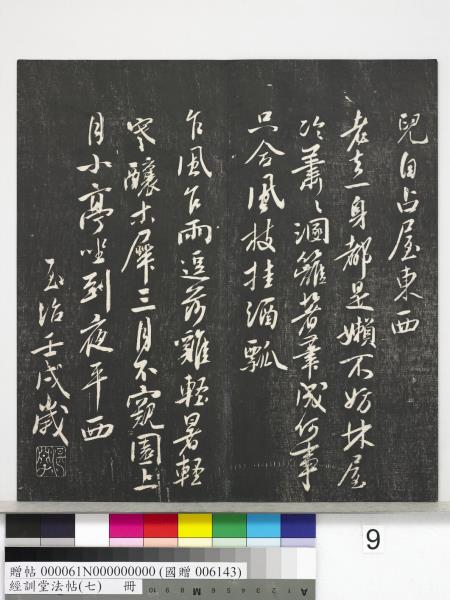 兒自占屋東西
老去一身都是嬾不妨林屋
冷蕭〻溷籬著成何事
只合風枝挂酒瓢
乍風乍雨逗輕暑輕
寒釀木犀三月不窺園上
月小亭坐到夜平西
至治壬戌歲
9
贈帖 000061N000000000 (國贈 006143)
經訓堂法帖(七) 冊